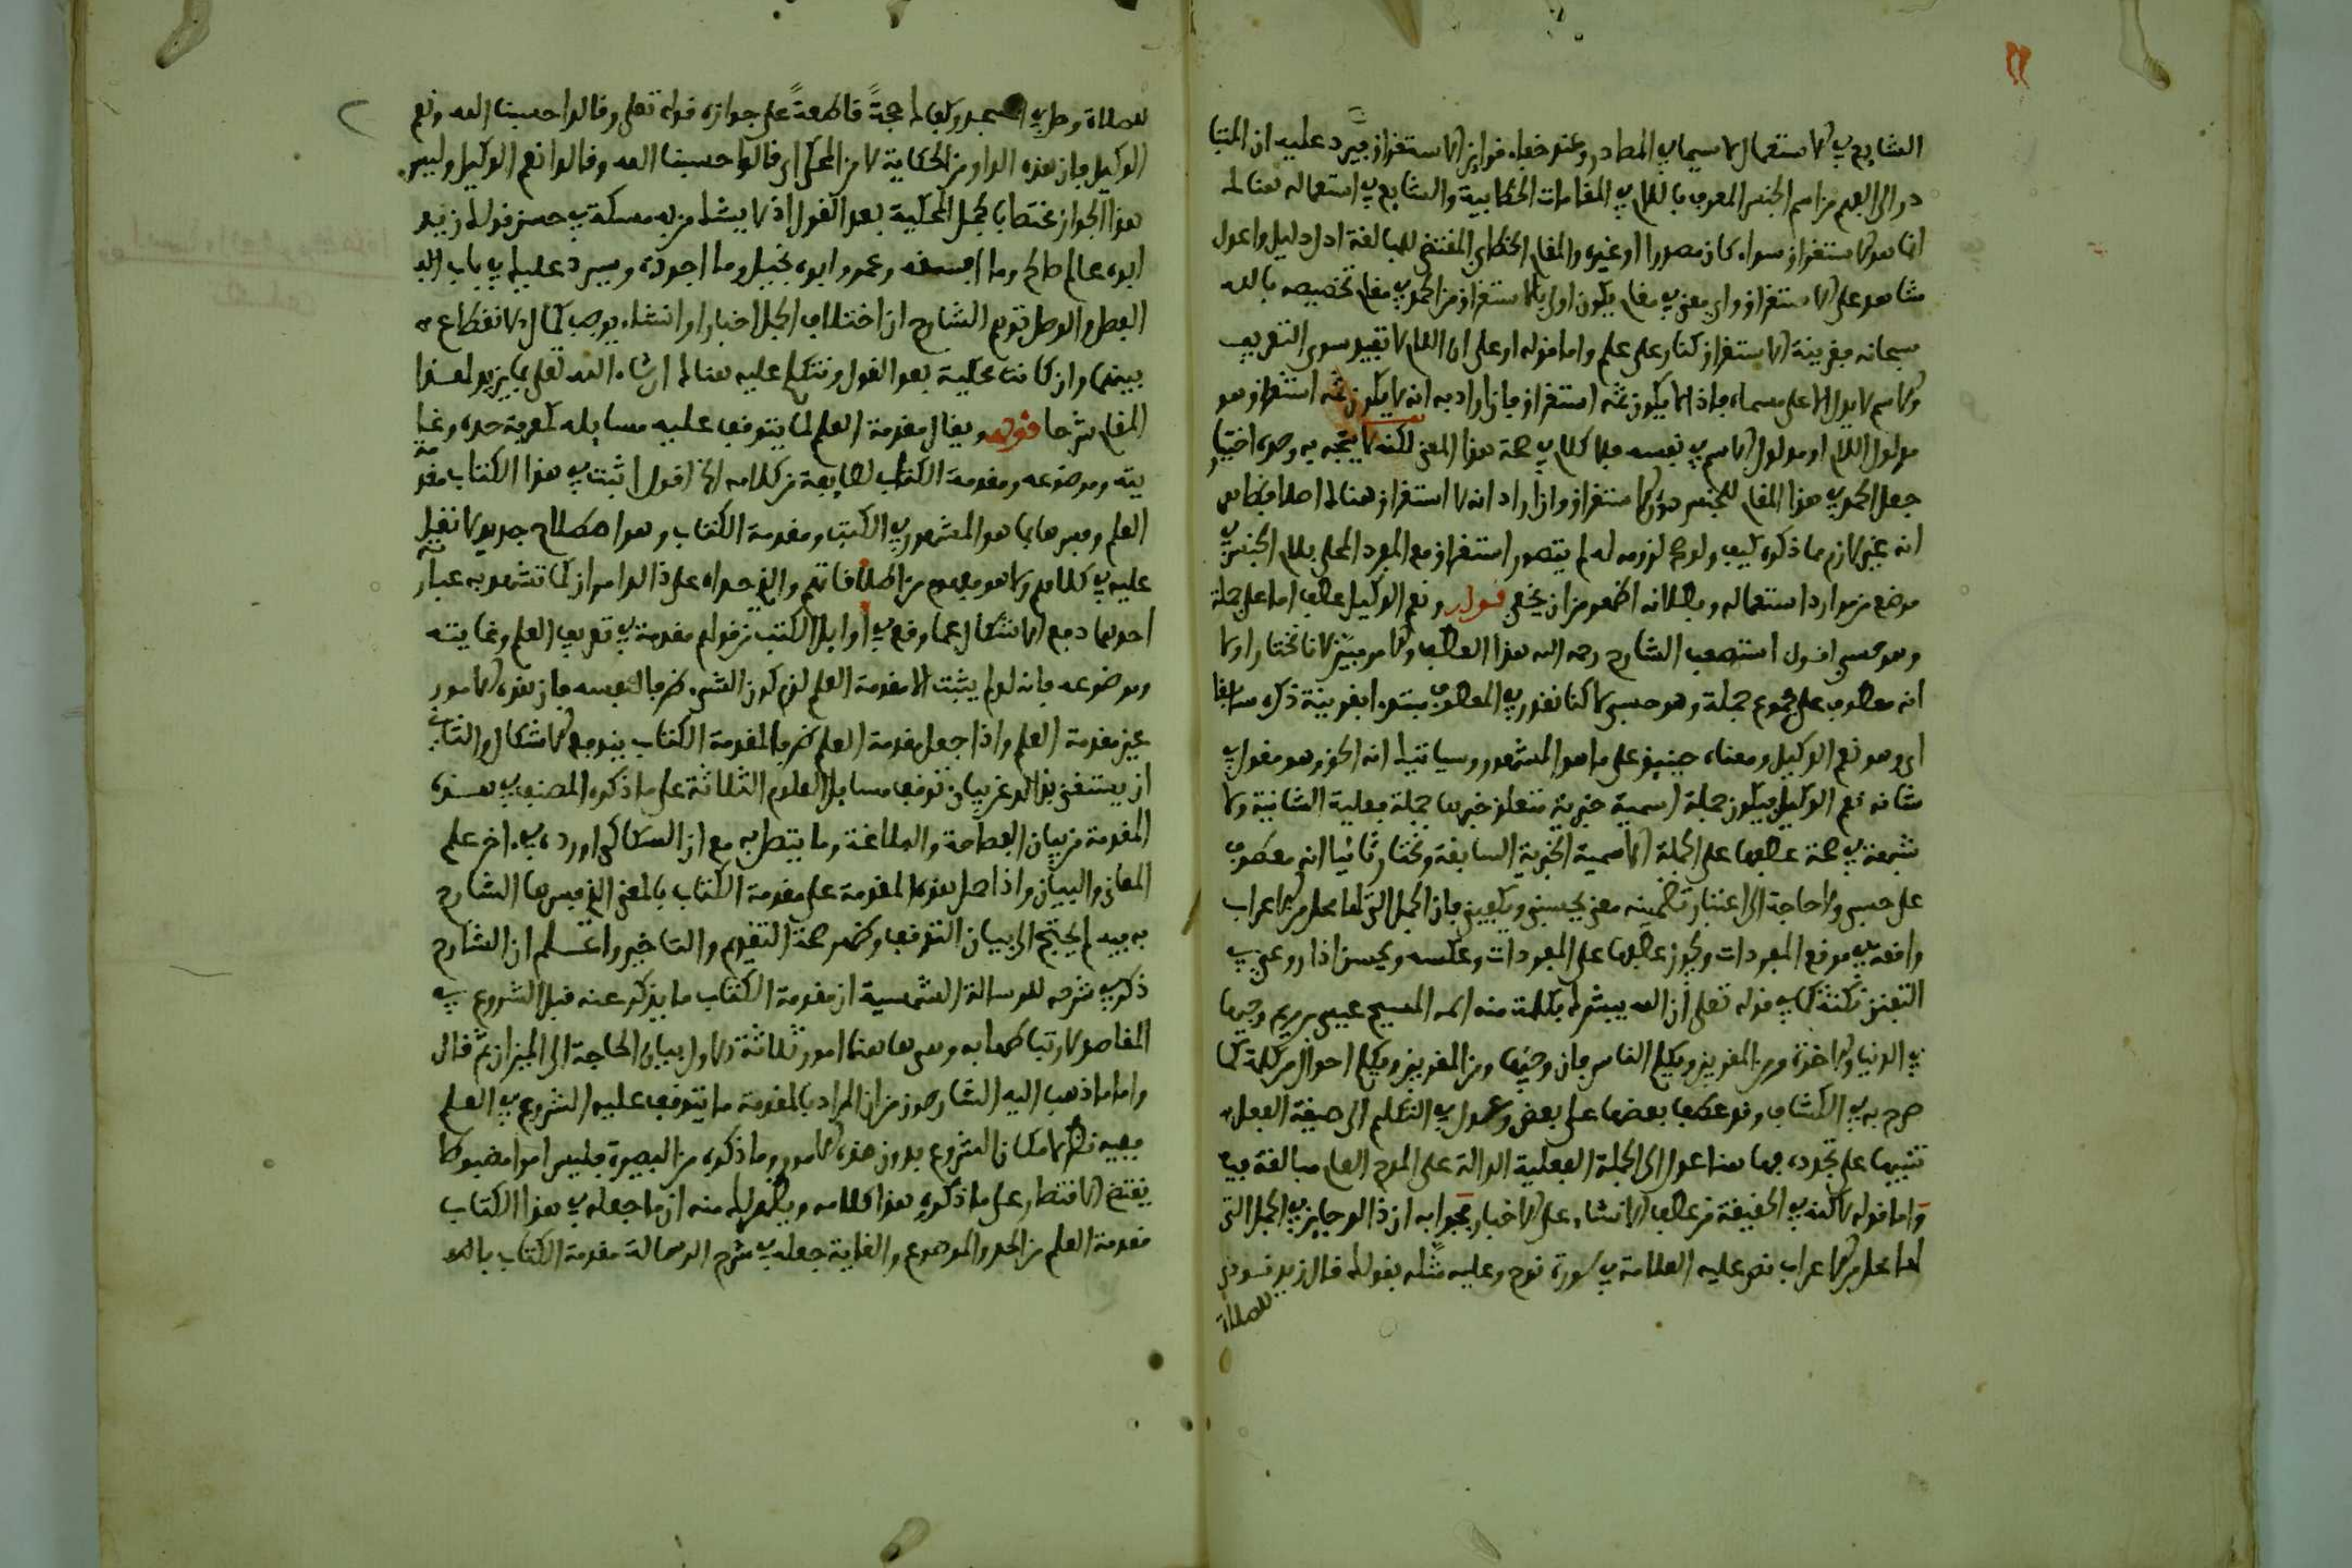 الشايع في الاستعمال لا سيما في المصادر وعند خفاء قراين الاستغراق فيرد عليه ان المتبا
در الى الفهم من اسم الجنس المعرف باللام في المقامات الخطابية والشايع في استعماله هنالك
انما هو الاستغراق سواء كان مصدرا او غيره والمقام الخطابي المقتضي للمبالغة ادل دليل واعدل
شاهد على الاستغراق واي معنى في مقام يكون اولى بالاستغراق من الحمد في مقام تخصيصه بالله
سبحانه فقرينة الاستغراق كنار على علم واما قوله او على ان اللام لا تفيد سوى التعريف
والاسم لا يدل الا على مسماه فاذا لا يكون ثمه استغراق فان اراد به انه لا يكون ثمه استغراق هو
مدلول اللام او مدلول الاسم في نفسه فلا كلام في صحة هذا المعنى لكنه لا يتجه به وجه اختيار
جعل الحمد في هذا المقام للجنس دون الاستغراق وان اراد انه لا استغراق هنالك اصلا فظاهر
انه غير لازم مما ذكره كيف ولو صح لزومه له لم يتصور استغراق مع المفرد المحلى بلام الجنس في
موضع من موارد استعماله وبطلانه اظهر من ان يخفى قوله ونعم الوكيل عطف اما على جملة
وهو حسبي اقول استصعب الشارح رحمه الله هذا العطف والامر هين لانا نختار اولا
انه معطوف على مجموع جملة وهو حسبي لاكنا نقدر في المعطوف مبتدءا بقرينة ذكره سابقا
اي وهو نعم الوكيل ومعناه حينيذ على ما هو المشهور وسياتيك انه الحق وهو مقول في
شانه نعم الوكيل فيكون جملة اسمية خبرية متعلق خبرها جملة فعلية انشائية ولا
شبهة في صحة عطفها على الجملة الاسمية الخبرية السابقة ونختار ثانيا انه معطوف
على حسبي ولا حاجة الى اعتبار تضمينه معنى يحسبني ويكفيني فان الجمل التي لها محل من الاعراب
واقعة في موقع المفردات ويجوز عطفها على المفردات وعكسه ويحسن اذا روعي في
التفنن نكتة كما في قوله تعالى ان الله يبشرك بكلمة منه اسمه المسيح عيسى بن مريم وجيها
في الدنيا والاخرة ومن المقربين ويكلم الناس فان وجيها ومن المقربين ويكلم احوال من كلمة كما
صرح به في الكشاف وقد عطف بعضها على بعض وعدل في التكلم الى صيغة الفعل
تنبيها على تجدده فيها هنا عدل الى الجملة الفعلية الدالة على المدح العام مبالغة فيه
واما قوله لاكنه في الحقيقة من عطف الانشاء على الاخبار فجوابه ان ذالك جايز في الجمل التي
لها محل من الاعراب نص عليه العلامة في سورة نوح وعليه مثله بقولك قال زيد نودي
للصلاة
للصلاة وصل في المسجد وكفاك حجة قاطعة على جوازه قوله تعالى وقالوا حسبنا الله ونعم
الوكيل فان هذه الواو من الحكاية لا من المحكي اي قالوا حسبنا الله وقالوا نعم الوكيل وليس
هذا الجواز مختصا بالجمل المحكية بعد القول اذ لا يشك من به مسكة في حسن قولك زيد
ابوه عالم صالح وما افسقه وعمرو ابوه بخيل وما اجوده وسيرد عليك في باب
الفصل والوصل توهم الشارح ان اختلاف الجمل اخبارا وانشاء يوجب كمال الانقطاع
بينها وان كانت محكية بعد القول ونتكلم عليه هنالك ان شاء الله تعالى بما يزيد لهذا
المقام شرحا قوله ويقال مقدمة العلم لما يتوقف عليه مسايله كمعرفة حده وغا
يته وموضوعه ومقدمة الكتاب لطايفة من كلامه الخ اقول اثبت في هذا الكتاب مقدمة
العلم وفسرها بما هو المشهور في الكتب ومقدمة الكتاب وهو اصطلاح جديد لا نقل
عليه في كلامهم ولا هو مفهوم من اطلاقاتهم والذي حداه على ذالك امران كما تشهد به عبارته
احدهما دفع الاشكال عما وقع في اوايل الكتب من قولهم مقدمة في تعريف العلم وغايته
وموضوعه فانه لو لم يثبت الا مقدمة العلم لزم كون الشيء ظرفا لنفسه فان هذه الامور
عين مقدمة العلم واذا جعل مقدمة العلم ظرفا لمقدمة الكتاب يندفع الاشكال والثاني
ان يستغنى بذالك عن بيان توقف مسايل العلوم الثلاثة على ما ذكره المصنف في هذه
المقدمة من بيان الفصاحة والبلاغة وما يتصل به مع ان السكاكي اورده في اخر علم
المعاني والبيان واذا حمل هذه المقدمة على مقدمة الكتاب بالمعنى الذي فسرها الشارح
به فيه لم يحتج الى بيان التوقف وظهر صحة التقديم والتاخير واعلم ان الشارح
ذكر في شرحه للرسالة الشمسية ان مقدمة الكتاب ما يذكر عنه قبل الشروع في
المقاصد لارتباطها به وهي هاهنا امور ثلاثة الاول بيان الحاجة الى الميزان ثم قال
واما ما ذهب اليه الشارحون من ان المراد بالمقدمة ما يتوقف عليه الشروع في العلم
ففيه نظر لامكان الشروع بدون هذه الامور وما ذكره من البصيرة فليس امرا مضبوطا
يقتضي الاقتصار على ما ذكره هذا كلامه ويظهر لك منه ان ما جعله في هذا الكتاب
مقدمة العلم من الحد والموضوع والغاية جعله في شرح الرسالة مقدمة الكتاب